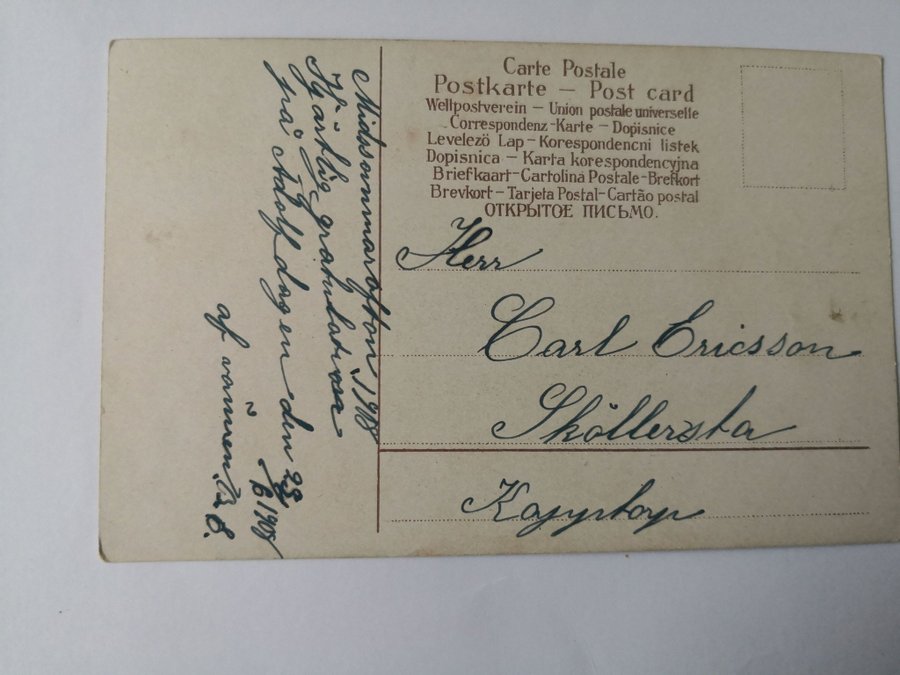 Carte Postale
Postkarte — Post card
Weltpostverein – Union postale universelle
Correspondenz-Karte – Dopisnice
Levelező Lap – Korespondencni listek
Dopisnica – Karta korespondencyjna
Briefkaart–Cartolina Postale–Brefkort
Brevkort – Tarjeta Postal–Cartão postal
ОТКРЫТОЕ ПИСЬМО.
Herr
Carl Ericsson
Sköllersta
Midsommarafton 1908
Hjärtlig gratulation
på Adolfdagen den 23/6 1908
af vännen